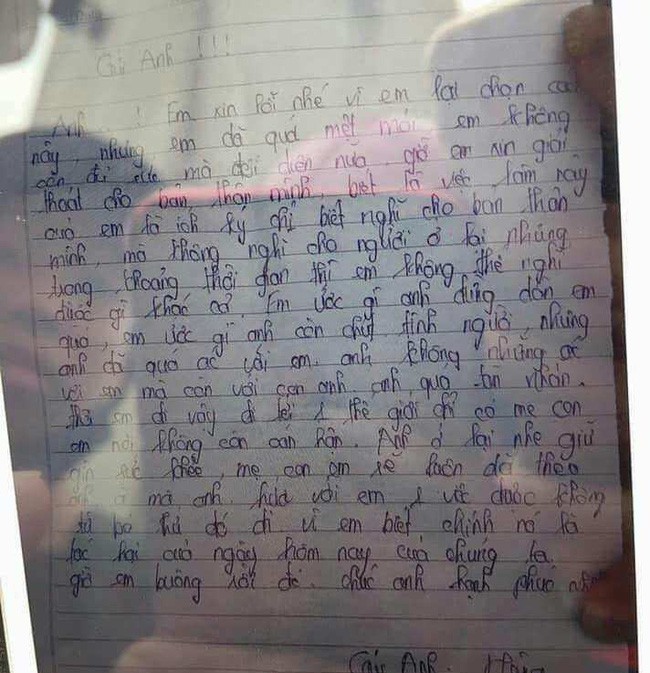 Gửi Anh !!!
Anh...! Em xin lỗi nhé vì em lại chọn cá
này, nhưng em đã quá mệt mỏi, em không
còn đủ sức mà đối diện nữa, giờ em xin giải
thoát cho bản thân mình, biết là việc làm này
của em là ích kỷ chỉ biết nghĩ cho bản thân
mình, mà không nghĩ cho người ở lại nhưng
trong khoảng thời gian thì em không thể nghĩ
được gì khác cả. Em ước gì anh đừng dồn em
quá, em ước gì anh còn chút tình người, nhưng
anh đã quá ác với em. anh không những ác
với em mà còn với con anh. anh quá tàn nhẫn.
thì em đi vậy đi tới 1 thế giới chỉ có mẹ con
em nơi không còn oán hận. Anh ở lại nhé giữ
gìn sức khỏe, mẹ con em sẽ luôn dõi theo
mà anh. hứa với em 1 việc được không
từ bỏ đó đi vì em biết chính nó là
tác hại của ngày hôm nay của chúng ta
giờ em buông rồi đó. chúc anh hạnh phúc
Gửi Anh.